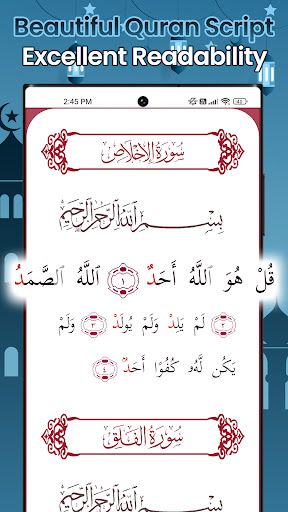 Beautiful Quran Script
Excellent Readability
2:45 PM
سُورَةُ الإِخْلَاصِ
بِسْمِ اللَّهِ الرَّحْمَٰنِ الرَّحِيمِ
قُلْ هُوَ اللَّهُ أَحَدٌ ١ اللَّهُ الصَّمَدُ
٢ لَمْ يَلِدْ وَلَمْ يُولَدْ ٣ وَلَمْ
يَكُن لَّهُۥ كُفُوًا أَحَدٌۢ ٤
سُورَةُ الفَلَقِ
بِسْمِ اللَّهِ الرَّحْمَٰنِ الرَّحِيمِ